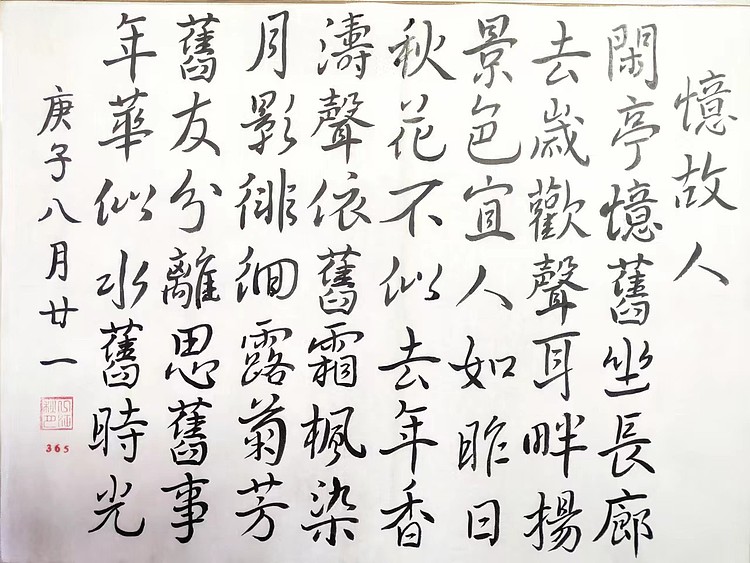 憶故人
閑亭憶舊坐長廊
去歲歡聲耳畔揚
景色宜人如昨日
秋花不似去年香
濤聲依舊霜楓染
月影徘徊露菊芳
舊友分離思舊事
年華似水舊時光
庚子八月廿一
365